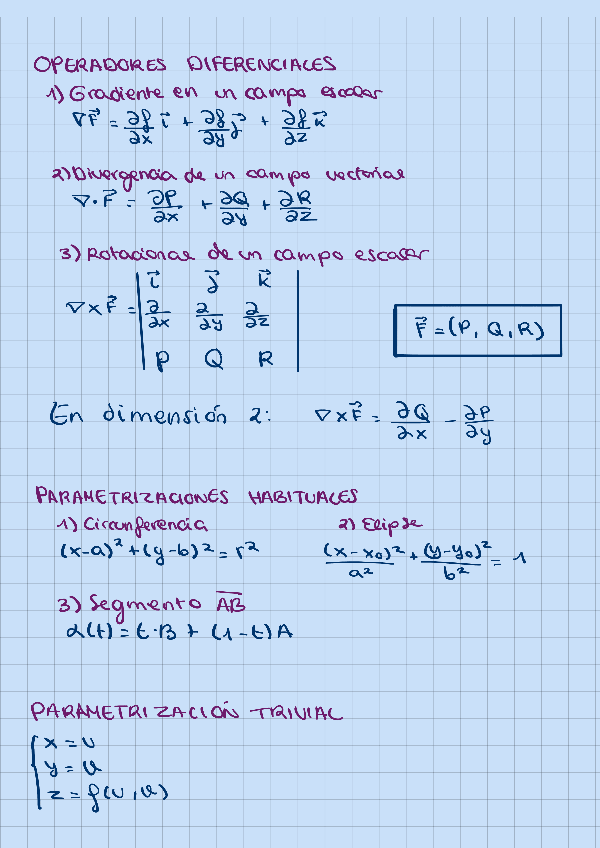 OPERADORES DIFERENCIALES
1) Gradiente en un campo escalar
∇F⃗ = ∂f/∂x i⃗ + ∂f/∂y j⃗ + ∂f/∂z k⃗
2) Divergencia de un campo vectorial
∇·F⃗ = ∂P/∂x + ∂Q/∂y + ∂R/∂z
3) Rotacional de un campo escalar
∇×F⃗ = | i⃗ j⃗ k⃗ |
| ∂/∂x ∂/∂y ∂/∂z |
| P Q R |
F⃗ = (P, Q, R)
En dimensión 2: ∇×F⃗ = ∂Q/∂x − ∂P/∂y
PARAMETRIZACIONES HABITUALES
1) Circunferencia
(x-a)² + (y-b)² = r²
2) Elipse
(x-x₀)²/a² + (y-y₀)²/b² = 1
3) Segmento A̅B̅
α(t) = t·B + (1-t)A
PARAMETRIZACIÓN TRIVIAL
x = u
y = v
z = f(u, v)